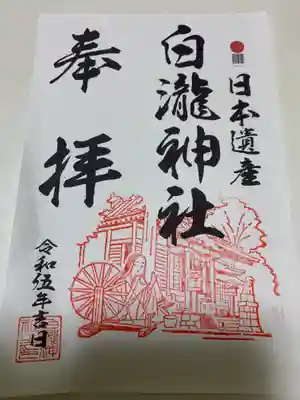 日本遺産
白瀧神社
奉拝
令和伍年吉日